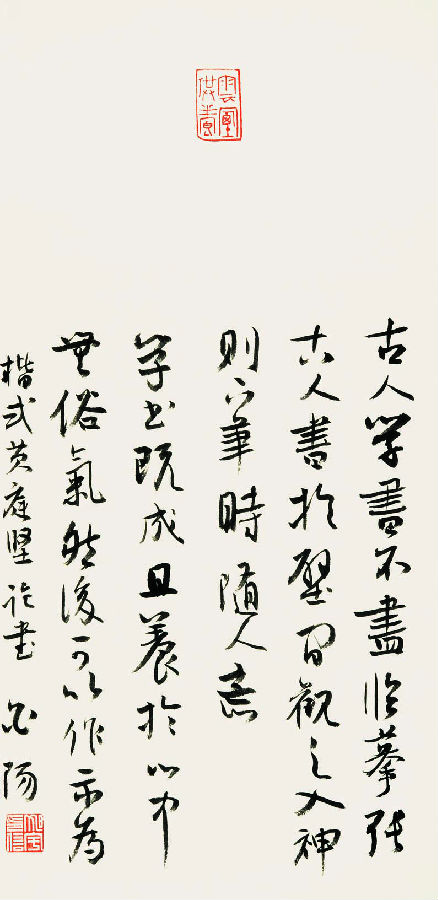 古人學書不盡臨摹張
古人書於壁間觀之入神
則下筆時隨人意
學書既成且養於心中
無俗氣然後可以作示為
楷式黃庭堅論書 白陽